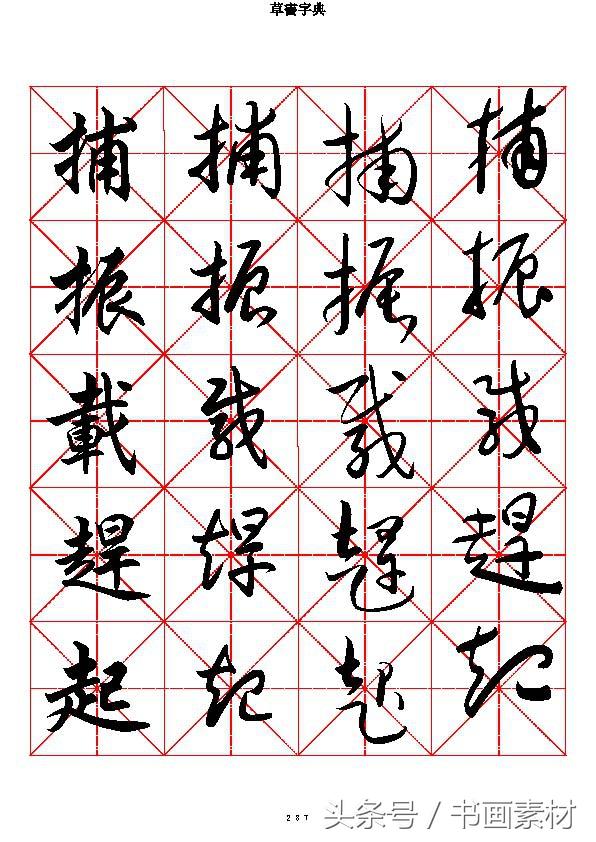 草書字典
捕 捕 捕 捕
振 振 振 振
載 載 載 載
趕 趕 趕 趕
起 起 起 起
287
头条号 / 书画素材